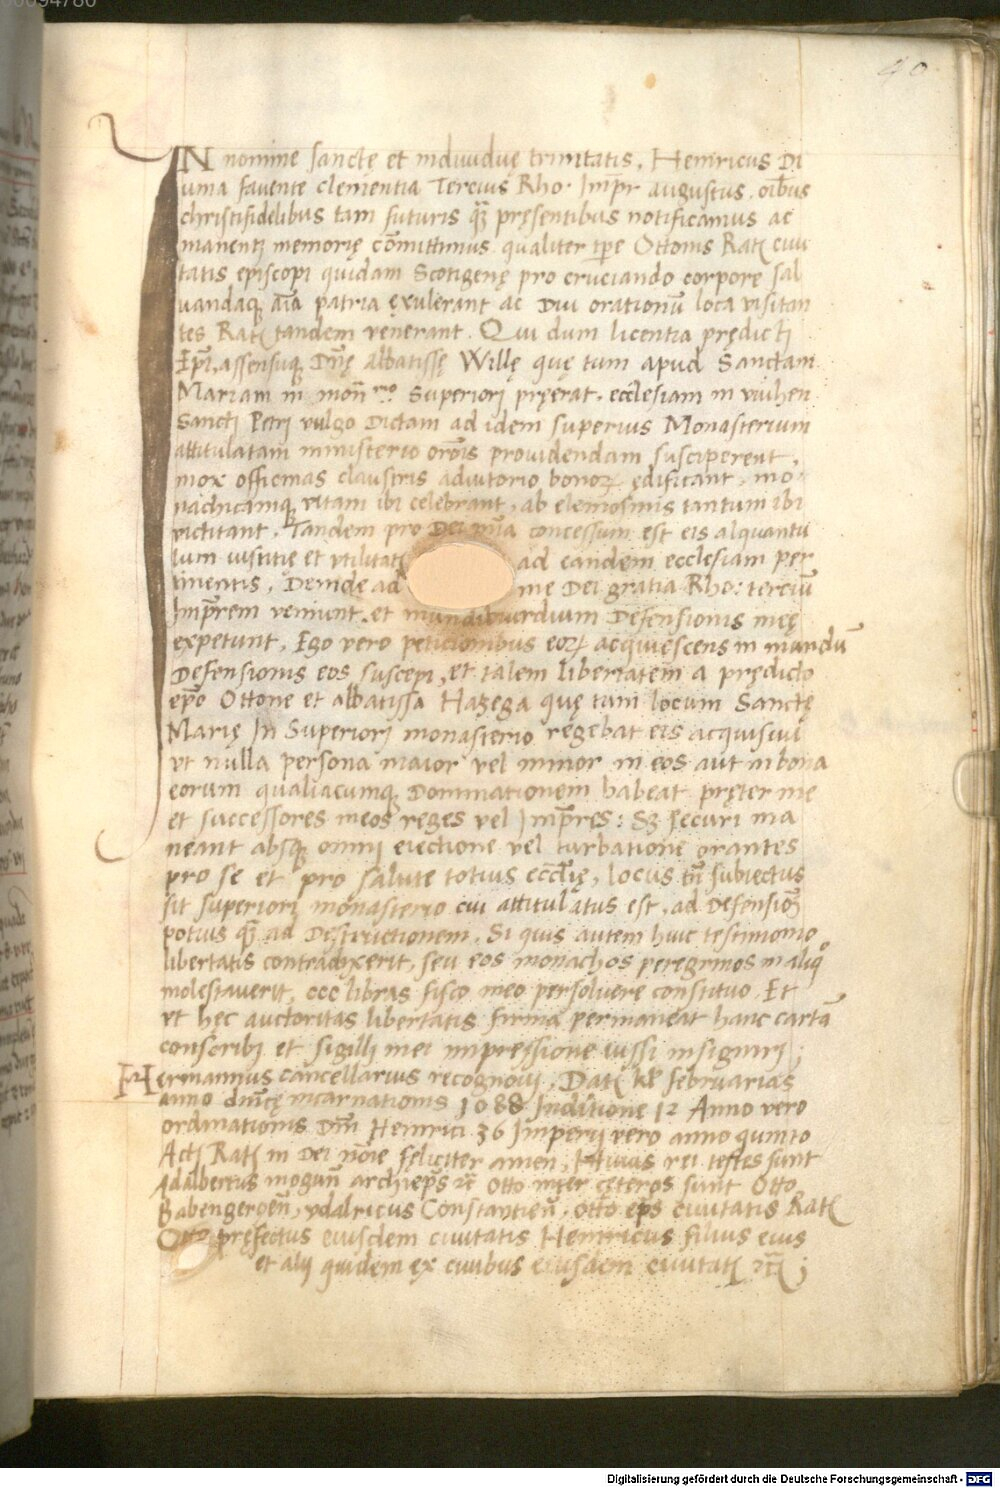 40
IN nomine sanctę et individuę trinitatis, Heinricus Di
uina favente clementia Tercius Rho. Imp̄r augustus. oīb̄us
christifidelibus tam futuris q̃ȝ pręsentibus notificamus ac
manentj memorię cōmittimus qualiter tp̄e Ottonis Ratȝ ciui
tatis episcopi quidam Scotigenę pro cruciando corpore sal
uandaqȝ aīa patria exulerant ac Diu orationū loca visitan
tes Ratȝ tandem venerant. Qui dum licentia prędictj
Ep̄i, assensuqȝ Dn̄ę abbatissę Willę quę tum apud Sanctam
Mariam in mon̄rio Superiorj pręerat. ecclesiam in viuhen
Sanctj Petrj vulgo Dictam ad idem superius Monasterium
attitulatam ministerio orōis providendam susciperent,
mox officinas claustris adiutorio bonorȝ ędificant, mo
nachicamqȝ vitam ibi celebrant, ab elemosinis tantum ibi
victitant. Tandem pro Dei mīa concessum est eis alquantu
lum iustitię et vtilitatȝ ad eandem ecclesiam per
tinentis, Deinde ad me Dei gratia Rho: terciū
Imp̄rem veniunt. et mundiburdium Defensionis meę
expetunt, Ego vero peticionibus eorȝ acquięscens in mundū
Defensionis eos suscepi, et talem libertatem a prędicto
ep̄o Ottone et abbatissa Hazega quę tam locum Sanctę
Marię In Superiorj monasterio regebat eis acquisiui
vt nulla persona maior vel minor in eos aut in bona
eorum qualiacumqȝ Dominationem habeat pręter me
et successores meos reges vel Imp̄res: Sȝ securi ma
neant absqȝ omnj eiectione vel turbatione orantes
pro se et pro salute totius eccl̄ię, locus tn̄ subiectus
sit superiorj monasterio cui attitulatus est, ad Defensionē
potius q̃ȝ ad Destructionem. Si quis autem huic testimonio
libertatis contradixerit, seu eos monachos peregrinos in aliqº
molestauerit, ccc libras fisco meo persoluere constituo. Et
vt hęc auctoritas libertatis firma permaneat hanc cartā
conscribj et sigilli mei impressione iussi insignirj;
Hermannus cancellarius recognouj, Datȝ kl̄ februarias
anno dn̄icę incarnationis 1088 Inditione 12 Anno vero
ordinationis Dn̄i Heinrici 36 Imperij vero anno quinto
Actȝ Ratȝ in Dei nōie fęliciter amen, Huius rei testes sunt
Adalbertus mogun̄ archiep̄s otto inter cęteros sunt Otto
Babengeroen̄, vdalricus Constantien̄, otto ep̄s ciuitatis Ratȝ
Otto pręfectus eiusdem ciuitatis Heinricus filius eius
et alij quidem ex ciuibus eiusdem ciuitatȝ ;
Digitalisierung gefördert durch die Deutsche Forschungsgemeinschaft - DFG